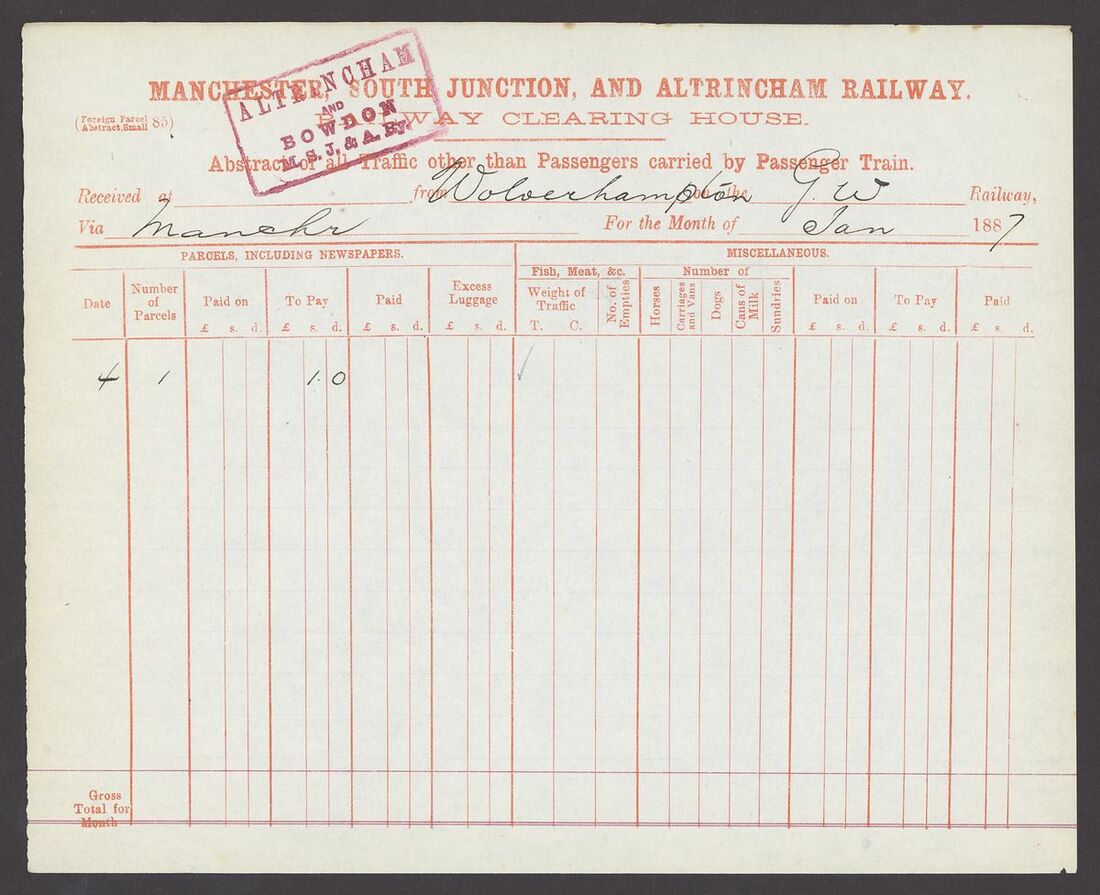 MANCHESTER, SOUTH JUNCTION, AND ALTRINCHAM RAILWAY.
ALTRINCHAM
AND
BOWDON
M.S.J. & A. Ry.
(Foreign Parcel Abstract, Small 85)
RAILWAY CLEARING HOUSE.
Abstract of all Traffic other than Passengers carried by Passenger Train.
Received at from Wolverhampton on the G. W Railway,
Via Manchr For the Month of Jan 1887
PARCELS, INCLUDING NEWSPAPERS. MISCELLANEOUS.
Fish, Meat, &c. Number of
Date Number of Parcels Paid on To Pay Paid Excess Luggage Weight of Traffic No. of Empties Horses Carriages and Vans Dogs Cans of Milk Sundries Paid on To Pay Paid
£ s. d. £ s. d. £ s. d. £ s. d. T. C. £ s. d. £ s. d. £ s. d.
4 1 1. 0
Gross
Total for
Month